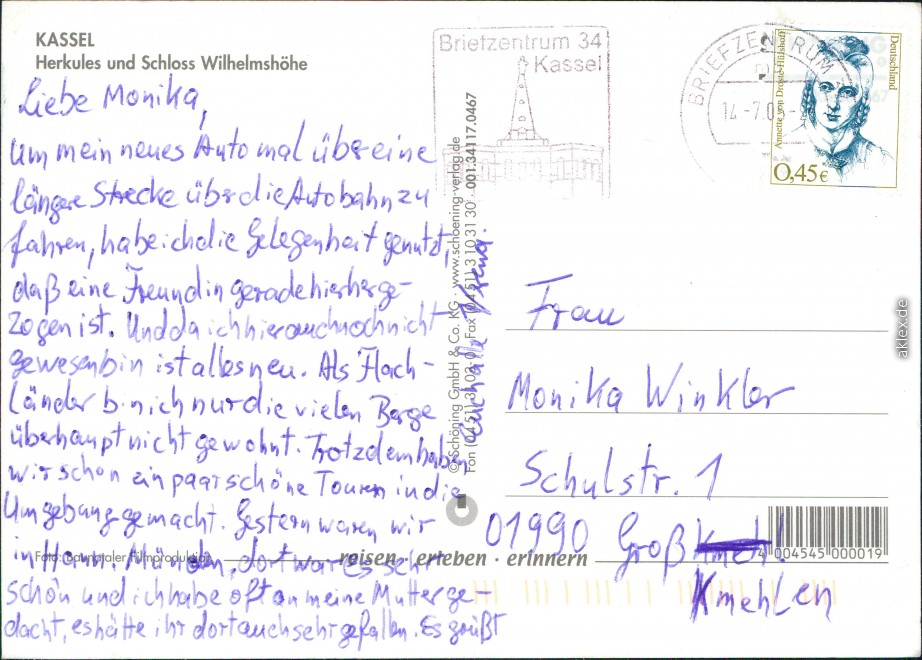 KASSEL
Herkules und Schloss Wilhelmshöhe
Liebe Monika,
um mein neues Auto mal über eine
längere Strecke über die Autobahn zu
fahren, habe ich die Gelegenheit genutzt,
daß eine Freundin gerade hierherge-
zogen ist. Und da ich hier auch noch nicht
gewesen bin ist alles neu. Als Flach-
länder bin ich nur die vielen Berge
überhaupt nicht gewohnt. Trotzdem haben
wir schon ein paar schöne Touren in die
Umgebung gemacht. Gestern waren wir
in Hann. Münden, dort war es sehr
schön und ich habe oft an meine Mutter ge-
dacht, es hätte ihr dort auch sehr gefallen. Es grüßt
euch alle Verena.
Foto: Baunataler Filmproduktion
reisen · erleben · erinnern
© Schöning GmbH & Co. KG · www.schoening-verlag.de
Fon (04 51) 3 10 31 30
001.34117.0467
Briefzentrum 34
Kassel
BRIEFZENTRUM
14-7.0
Annette von Droste-Hülshoff
Deutschland
0,45€
Frau
Monika Winkler
Schulstr. 1
01990 Groß
Kmehlen
4 004545 000019
aklex.de